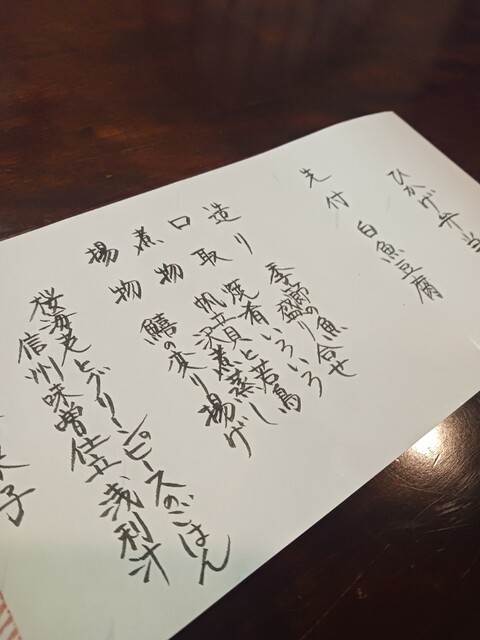 ひかげ弁当
先付 白魚豆腐
造り 季節の魚盛り合せ
口取 焼肴いろいろ
煮物 帆立貝と若鳥
沢煮蒸し
揚物 鱚の変り揚げ
桜海老とグリーンピースのごはん
信州味噌仕立、浅利汁
菓子